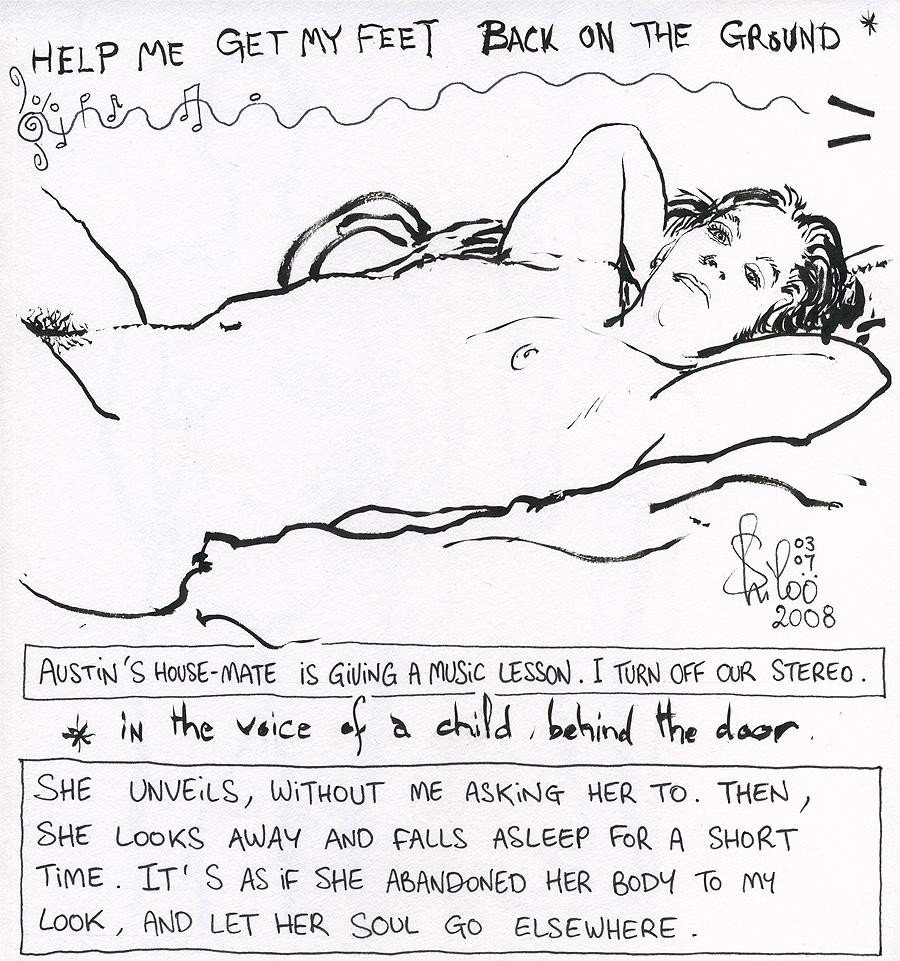 HELP ME GET MY FEET BACK ON THE GROUND *
03
07
2008
AUSTIN'S HOUSE-MATE IS GIVING A MUSIC LESSON. I TURN OFF OUR STEREO.
* in the voice of a child, behind the door.
SHE UNVEILS, WITHOUT ME ASKING HER TO. THEN,
SHE LOOKS AWAY AND FALLS ASLEEP FOR A SHORT
TIME. IT'S AS IF SHE ABANDONED HER BODY TO MY
LOOK, AND LET HER SOUL GO ELSEWHERE.